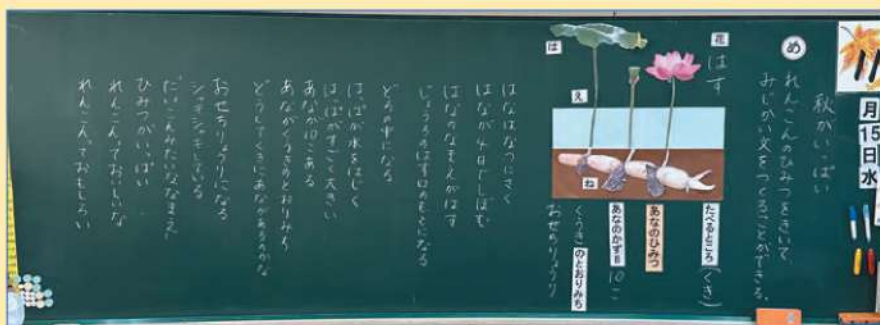 11
月
15
日
水
秋がいっぱい
め
れんこんのひみつをきいて、
みじかい文をつくることができる。
花
はす
は
え
ね
たべるところ
(くき)
あなのひみつ
あなのかず8
10こ
くうき
のとおりみち
おせちりょうり
はなはなつにさく
はなが4日でしぼむ
はなのなまえがはす
じょうろのはす口のもとになる
どろの中になる
はっぱが水をはじく
はっぱがすごく大きい
あなが10こある
あながくうきのとおりみち
どうしてくきにあながあるのかな
おせちりょうりになる
シャキシャキしている
だいこんみたいななまえ
ひみつがいっぱい
れんこんっておいしいな
れんこんっておもしろい